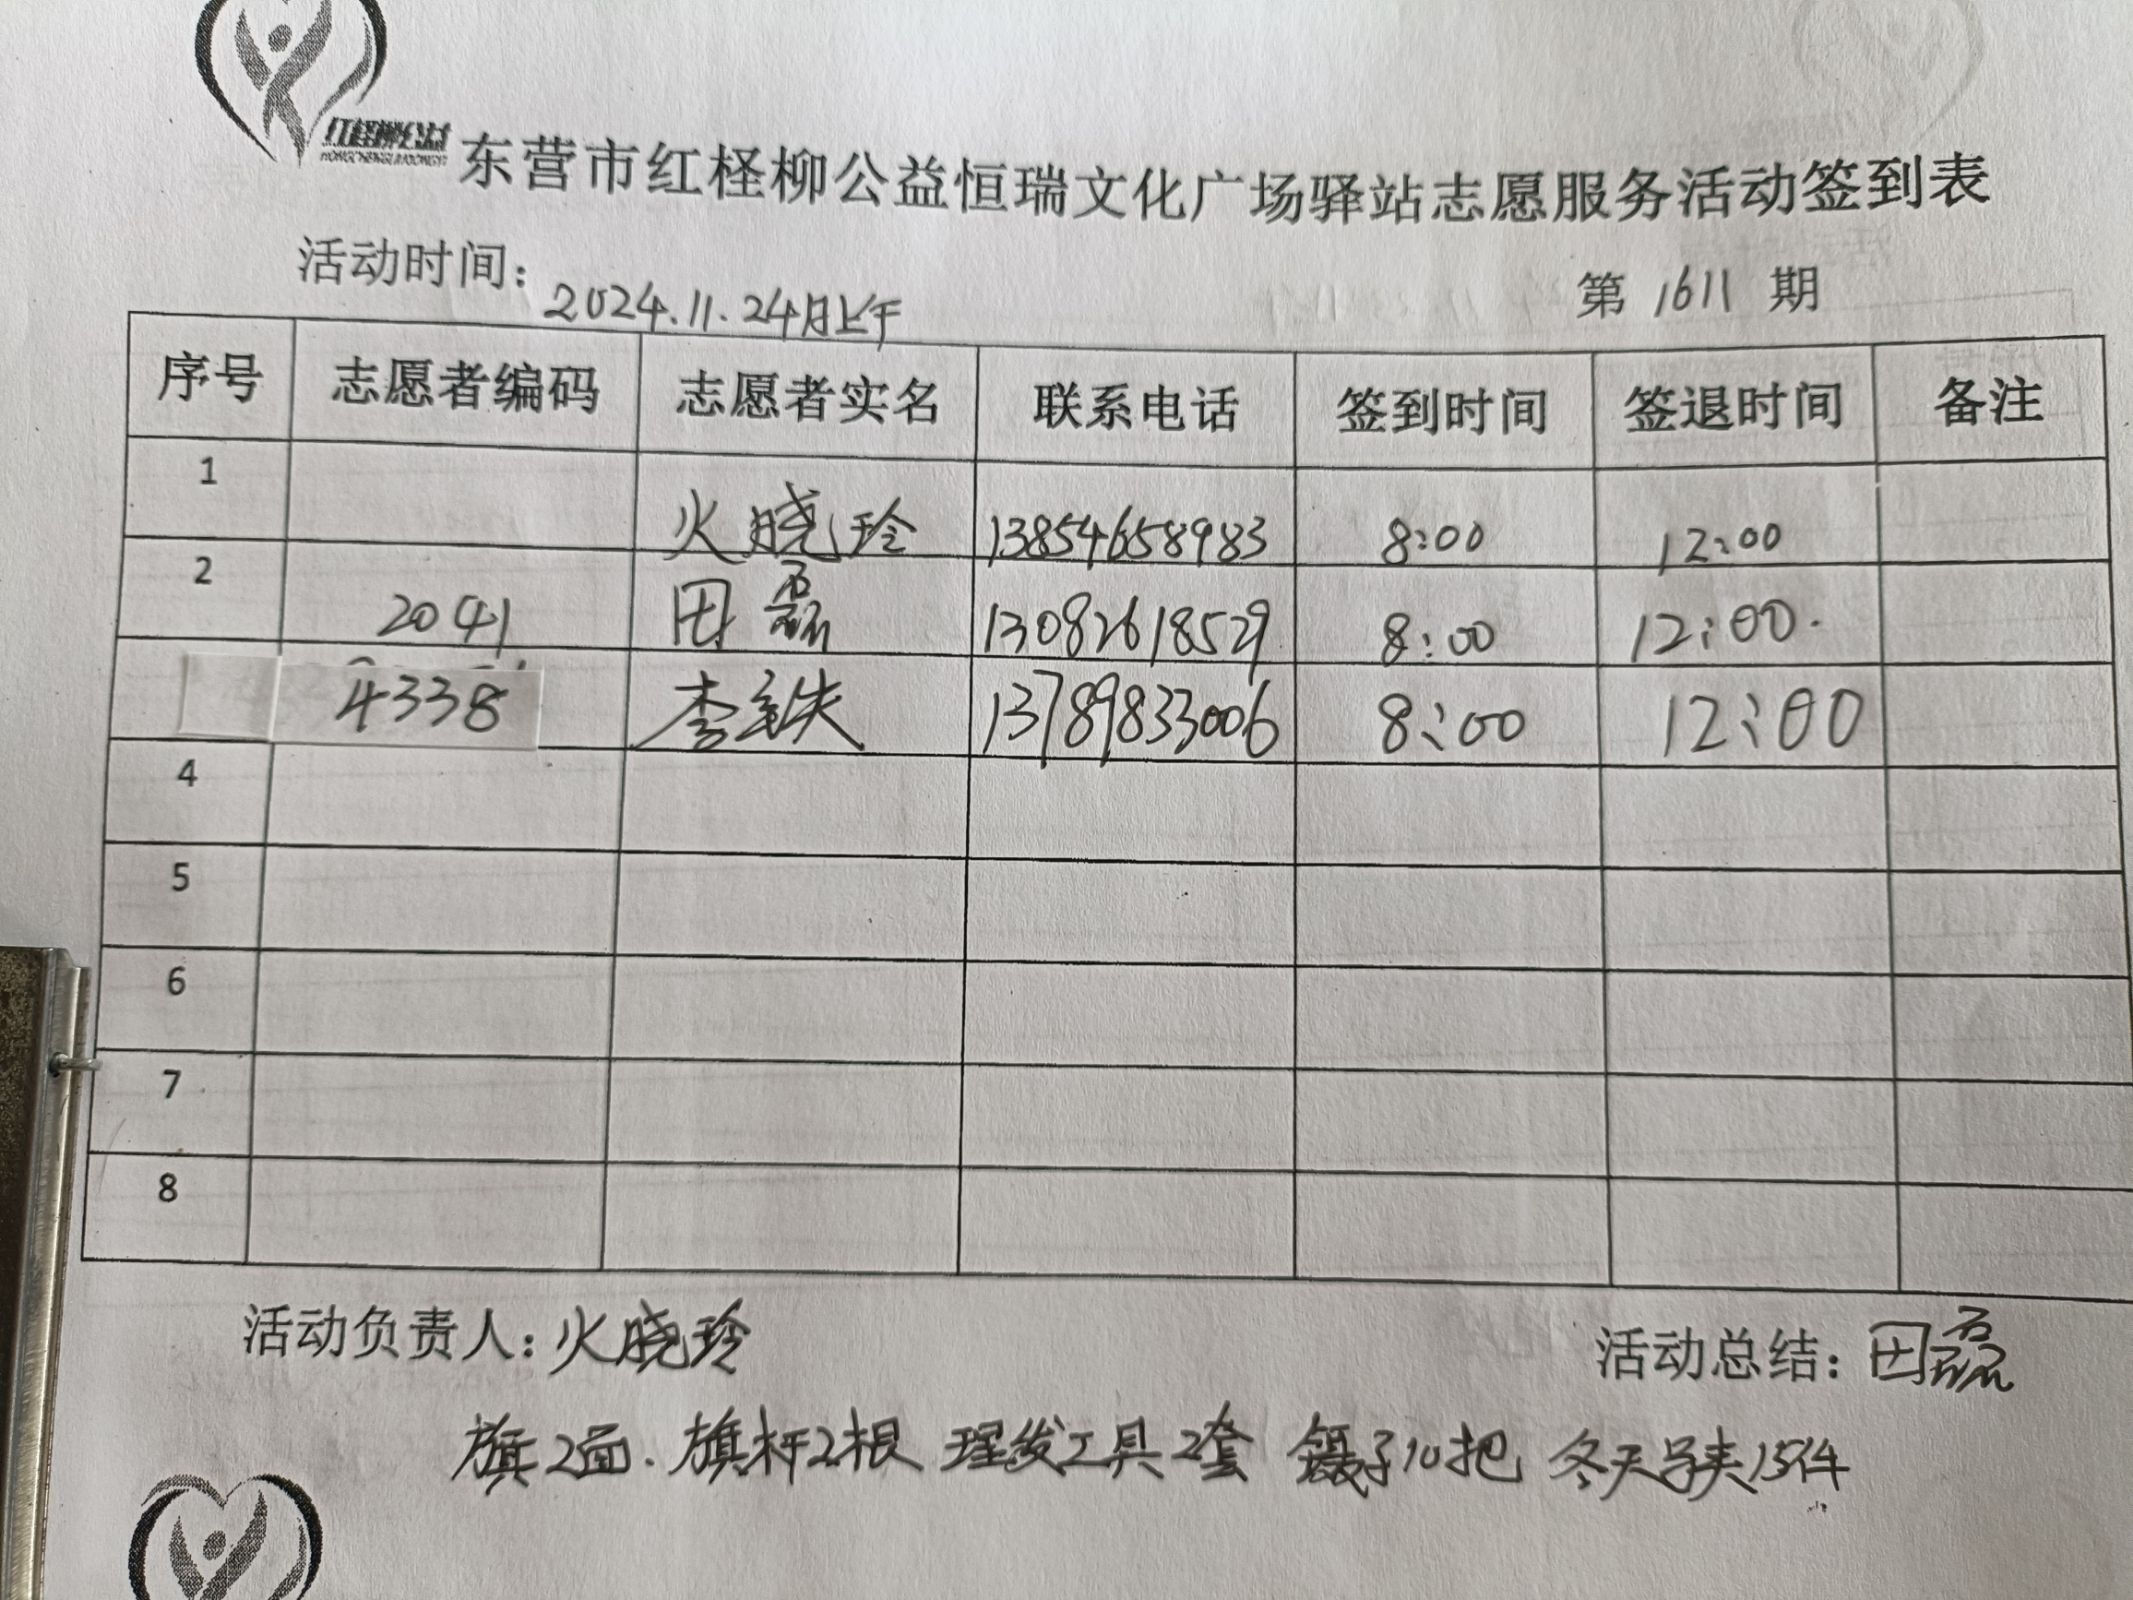 红柽柳公益
HONGCHENGLIUGONGYI
东营市红柽柳公益恒瑞文化广场驿站志愿服务活动签到表
活动时间: 2024.11.24日上午 第 1611 期
序号 志愿者编码 志愿者实名 联系电话 签到时间 签退时间 备注
1 火晓玲 13854658983 8:00 12:00
2 2041 田磊 13082618529 8:00 12:00.
4338 李铁 13789833006 8:00 12:00
4
5
6
7
8
活动负责人: 火晓玲 活动总结: 田磊
旗2面. 旗杆2根 理发工具2套 镊子10把 冬天马夹15件